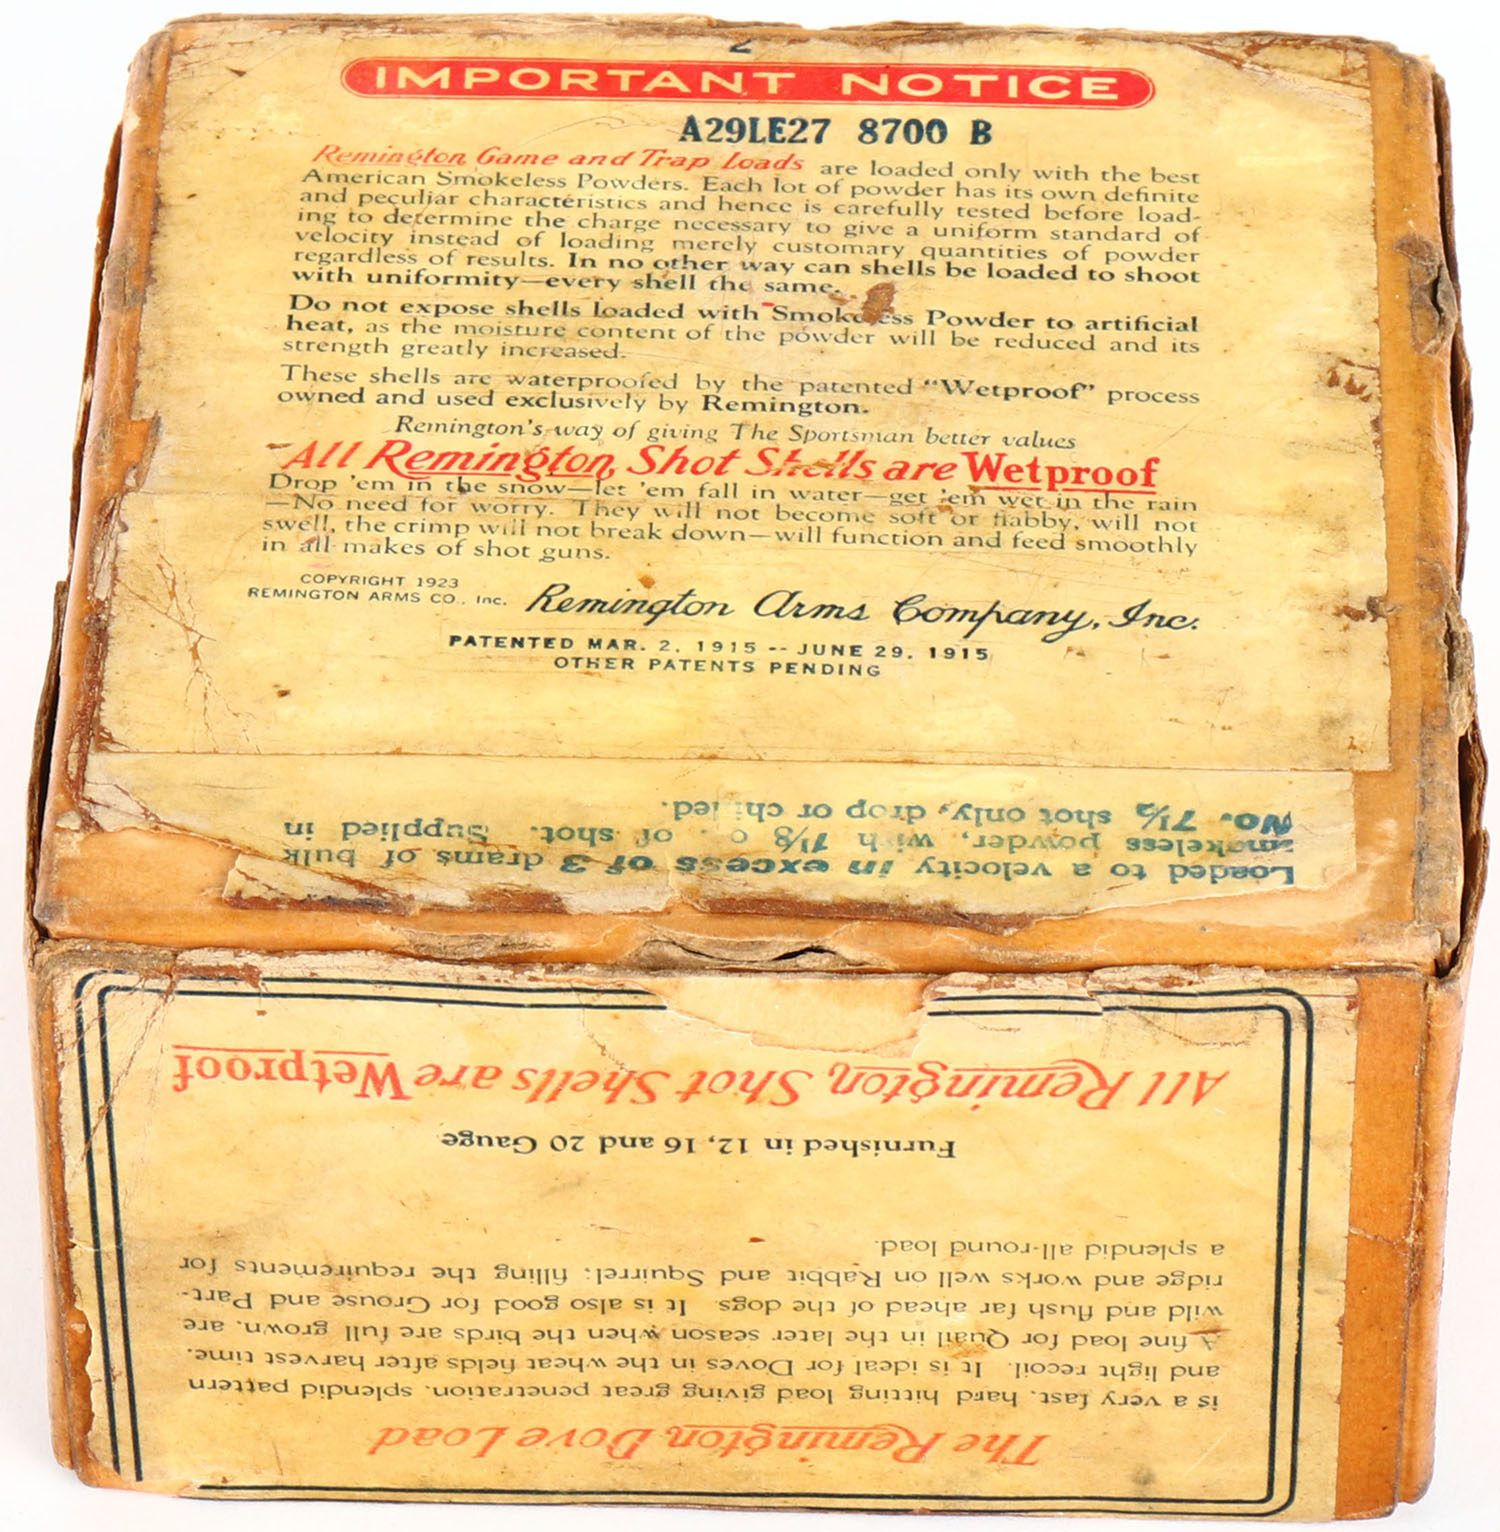 2
IMPORTANT NOTICE
A29LE27 8700 B
Remington Game and Trap Loads are loaded only with the best
American Smokeless Powders. Each lot of powder has its own definite
and peculiar characteristics and hence is carefully tested before load-
ing to determine the charge necessary to give a uniform standard of
velocity instead of loading merely customary quantities of powder
regardless of results. In no other way can shells be loaded to shoot
with uniformity—every shell the same.
Do not expose shells loaded with Smokeless Powder to artificial
heat, as the moisture content of the powder will be reduced and its
strength greatly increased.
These shells are waterproofed by the patented "Wetproof" process
owned and used exclusively by Remington.
Remington's way of giving The Sportsman better values
All Remington Shot Shells are Wetproof
Drop 'em in the snow—let 'em fall in water—get 'em wet in the rain
—No need for worry. They will not become soft or flabby, will not
swell, the crimp will not break down—will function and feed smoothly
in all makes of shot guns.
COPYRIGHT 1923
REMINGTON ARMS CO., Inc.
Remington Arms Company, Inc.
PATENTED MAR. 2, 1915 -- JUNE 29, 1915
OTHER PATENTS PENDING
Loaded to a velocity in excess of 3 drams of bulk
smokeless powder, with 1⅛ o . of shot. Supplied in
No. 7½ shot only, drop or chilled.
The Remington Dove Load
is a very fast, hard hitting load giving great penetration, splendid pattern
and light recoil. It is ideal for Doves in the wheat fields after harvest time.
A fine load for Quail in the later season when the birds are full grown, are
wild and flush far ahead of the dogs. It is also good for Grouse and Part-
ridge and works well on Rabbit and Squirrel; filling the requirements for
a splendid all-round load.
Furnished in 12, 16 and 20 Gauge
All Remington Shot Shells are Wetproof